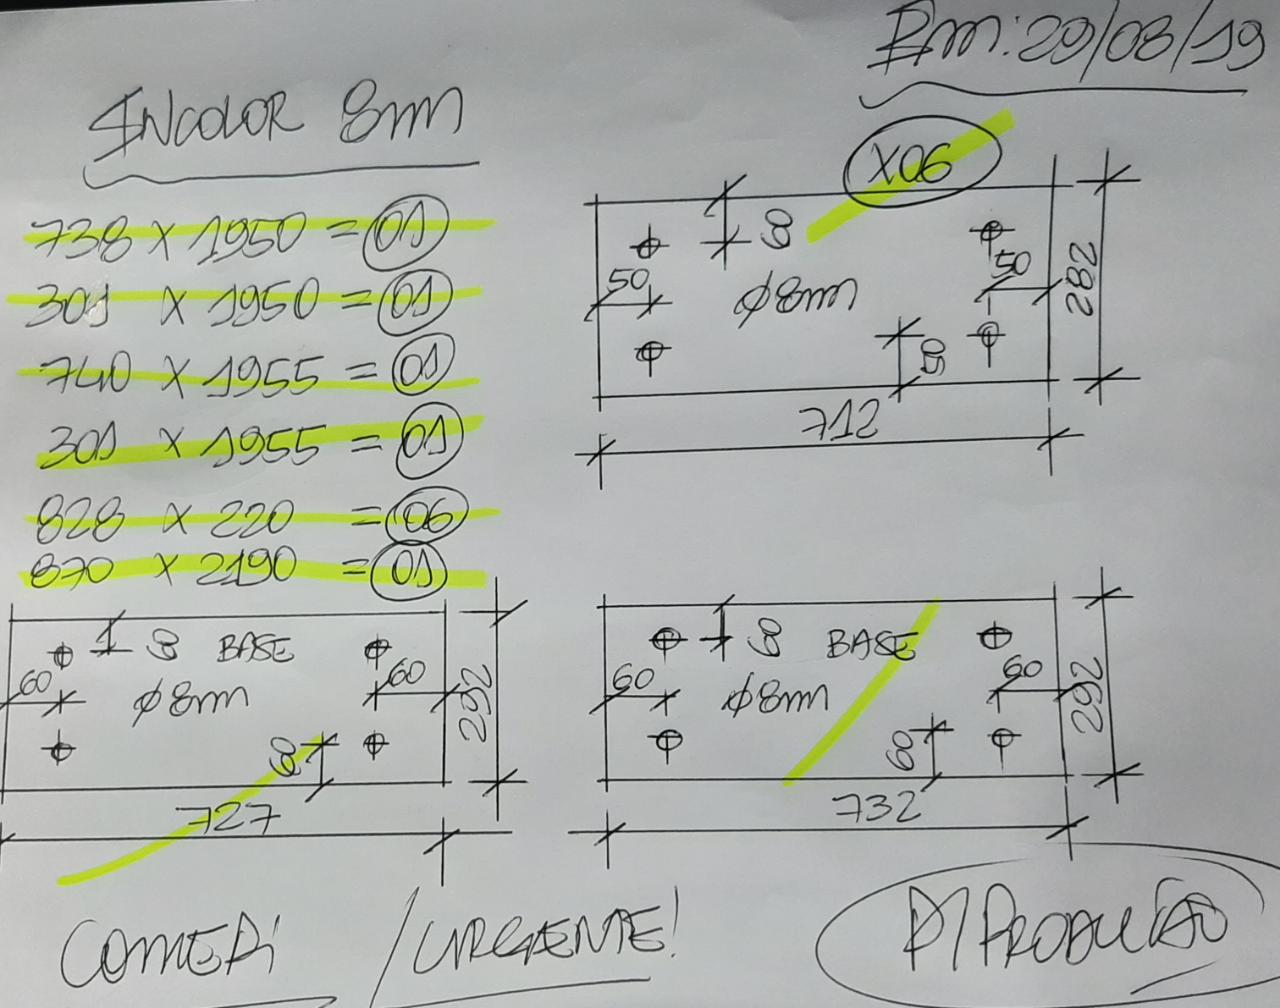 Em: 29/08/19
INCOLOR 8mm
738 X 1950 = 01
301 X 1950 = 01
740 X 1955 = 01
301 X 1955 = 01
828 X 220 = 06
870 X 2190 = 01
X06
50
50
Ø8mm
282
712
BASE
60
60
Ø8mm
292
727
BASE
60
60
Ø8mm
60
292
732
/URGENTE!
P/PRODUÇÃO